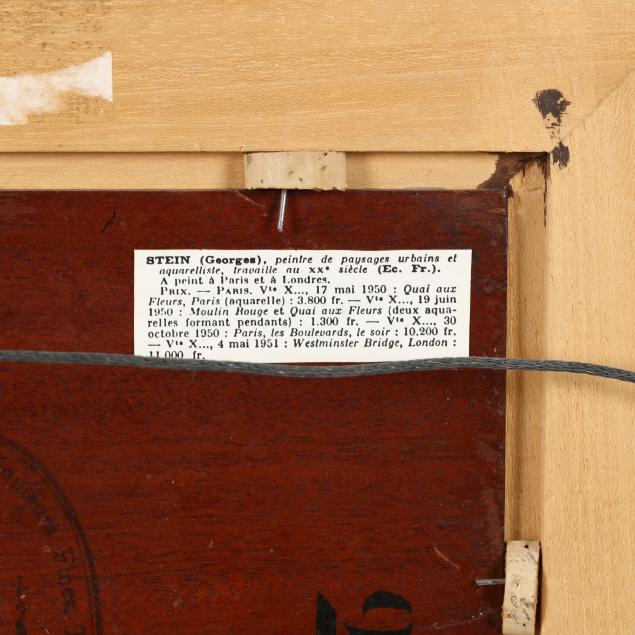 STEIN (Georges), peintre de paysages urbains et
aquarelliste, travaille au XXᵉ siècle (Ec. Fr.).
A peint à Paris et à Londres.
PRIX. — PARIS. Vᵗᵉ X..., 17 mai 1950 : Quai aux
Fleurs, Paris (aquarelle) : 3.800 fr. — Vᵗᵉ X..., 19 juin
1950 : Moulin Rouge et Quai aux Fleurs (deux aqua-
relles formant pendants) : 1.300 fr. — Vᵗᵉ X..., 30
octobre 1950 : Paris, les Boulevards, le soir : 10.200 fr.
— Vᵗᵉ X..., 4 mai 1951 : Westminster Bridge, London :
11.000 fr.